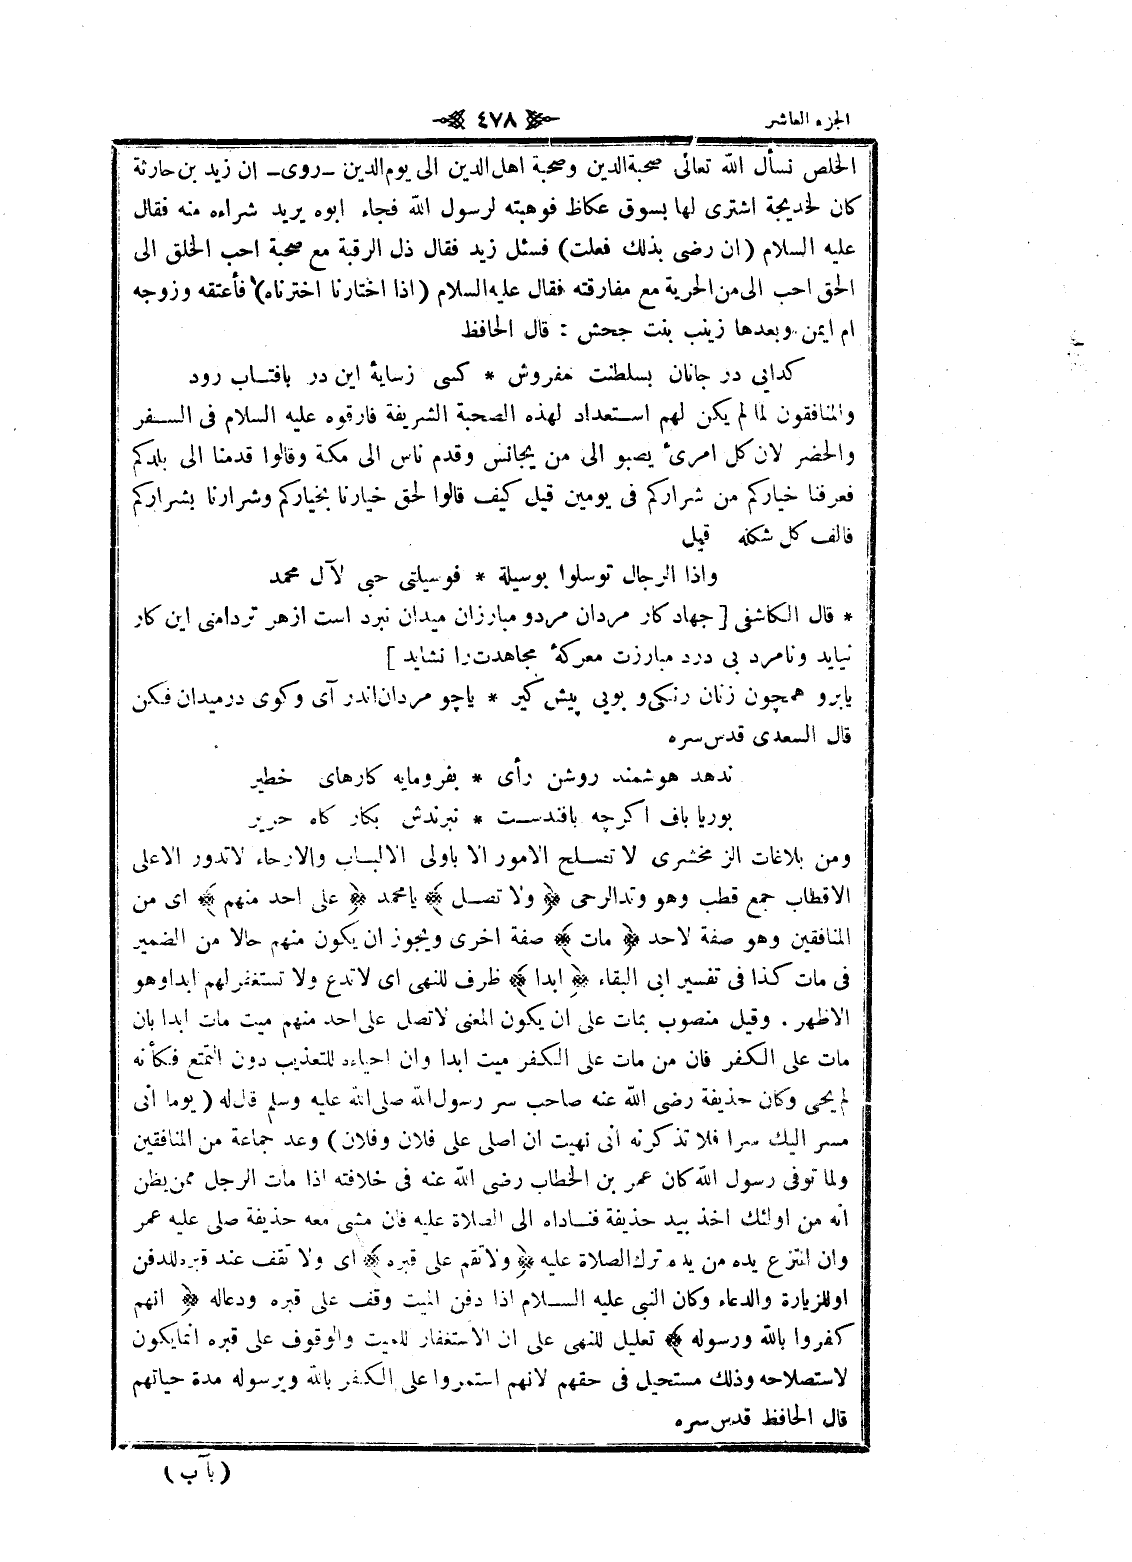 الجزء العاشر
٤٧٨
الخلص نسأل الله تعالى صحبة الدين وصحبة اهل الدين الى يوم الدين ـ روى ـ ان زيد بن حارثة
كان لخديجة اشترى لها بسوق عكاظ فوهبته لرسول الله فجاء ابوه يريد شراءه منه فقال
عليه السلام (ان رضى بذلك فعلت) فسئل زيد فقال ذل الرقبة مع صحبة احب الخلق الى
الحق احب الى من الحرية مع مفارقته فقال عليه السلام (اذا اختارنا اخترناه) فأعتقه وزوجه
ام ايمن وبعدها زينب بنت جحش : قال الحافظ
كدايى در جانان بسلطنت مفروش * كسى زسايۀ اين در بافتاب رود
والمنافقون لما لم يكن لهم استعداد لهذه الصحبة الشريفة فارقوه عليه السلام فى السفر
والحضر لان كل امرئ يصبو الى من يجانس وقدم ناس الى مكة وقالوا قدمنا الى بلدكم
فعرفنا خياركم من شراركم فى يومين قيل كيف قالوا لحق خيارنا بخياركم وشرارنا بشراركم
فالف كل شكله قيل
واذا الرجال توسلوا بوسيلة * فوسيلتى حبى لآل محمد
* قال الكاشفى [ جهاد كار مردان مردو مبارزان ميدان نبرد است ازهر تردامنى اين كار
نيايد ونامرد بى درد مبارزت معركۀ مجاهدت را نشايد ]
يابرو همچون زنان رنكى و بويى پيش كير * ياچو مردان اندر آى وكوى درميدان فكن
قال السعدى قدس سره
ندهد هوشمند روشن رأى * بفرومايه كارهاى خطير
بوريا باف اكرچه بافندست * نبرندش بكار كاه حرير
ومن بلاغات الزمخشرى لا تصلح الامور الا باولى الالباب والارحاء لا تدور الا على
الاقطاب جمع قطب وهو وتد الرحى ﴿ ولا تصل ﴾ يا محمد ﴿ على احد منهم ﴾ اى من
المنافقين وهو صفة لاحد ﴿ مات ﴾ صفة اخرى ويجوز ان يكون منهم حالا من الضمير
فى مات كذا فى تفسير ابى البقاء ﴿ ابدا ﴾ ظرف للنهى اى لا تدع ولا تستغفر لهم ابدا وهو
الاظهر . وقيل منصوب بمات على ان يكون المعنى لا تصل على احد منهم ميت مات ابدا بان
مات على الكفر فان من مات على الكفر ميت ابدا وان احياءه للتعذيب دون التمتع فكأنه
لم يحى وكان حذيفة رضى الله عنه صاحب سر رسول الله صلى الله عليه وسلم قال له ( يوما انى
مسر اليك سرا فلا تذكرنه انى نهيت ان اصلى على فلان وفلان ) وعد جماعة من المنافقين
ولما توفى رسول الله كان عمر بن الخطاب رضى الله عنه فى خلافته اذا مات الرجل ممن يظن
انه من اولئك اخذ بيد حذيفة فناداه الى الصلاة عليه فان مشى معه حذيفة صلى عليه عمر
وان انتزع يده من يده ترك الصلاة عليه ﴿ ولا تقم على قبره ﴾ اى ولا تقف عند قبره للدفن
او للزيارة والدعاء وكان النبى عليه السلام اذا دفن الميت وقف على قبره ودعا له ﴿ انهم
كفروا بالله ورسوله ﴾ تعليل للنهى على ان الاستغفار للميت والوقوف على قبره انما يكون
لاستصلاحه وذلك مستحيل فى حقهم لانهم استمروا على الكفر بالله وبرسوله مدة حياتهم
قال الحافظ قدس سره
( بآب )